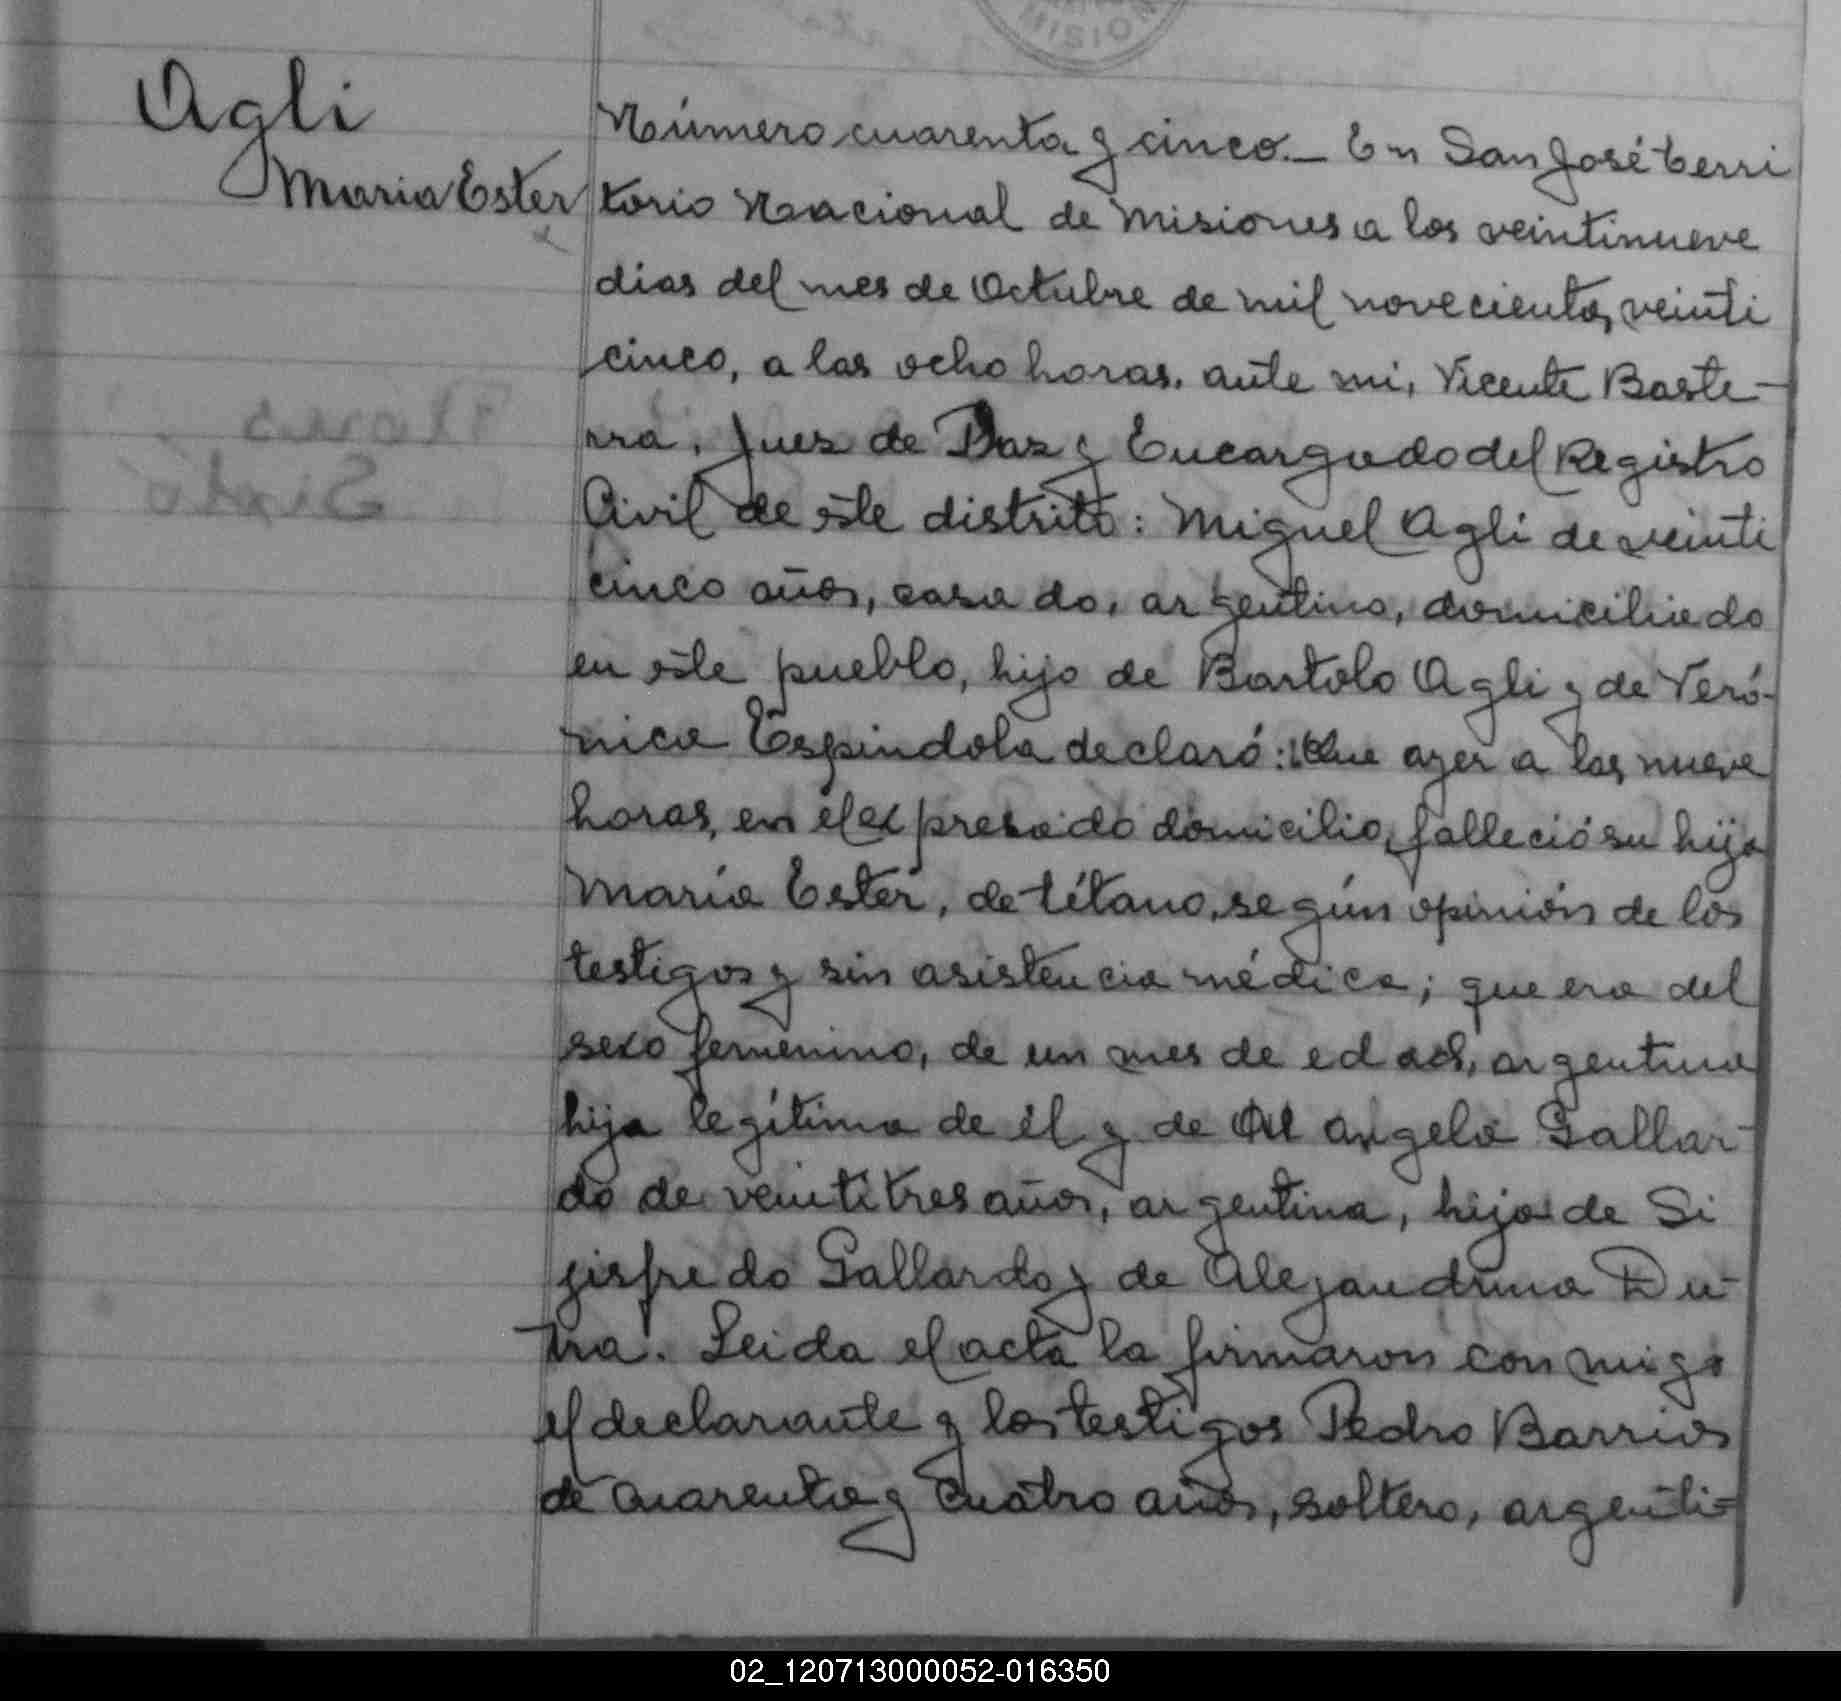 MISION
Agli
Maria Ester
Número cuarenta y cinco._ En San José terri
torio Nacional de Misiones a los veintinueve
dias del mes de Octubre de mil novecientos veinti
cinco, a las ocho horas. ante mi, Vicente Baste-
rra, Juez de Paz y Encargado del Registro
Civil de éste distrito: Miguel Agli de veinti
cinco años, casado, argentino, domiciliado
en éste pueblo, hijo de Bartolo Agli y de Veró-
nica Espindola declaró: Que ayer a las nueve
horas, en el expresado domicilio, falleció su hija
María Ester, de tétano, según opinión de los
testigos y sin asistencia médica; que era del
sexo femenino, de un mes de edad, argentina
hija legítima de él y de Angela Gallar-
do de veintitres años, argentina, hija de Si
gisfredo Gallardo y de Alejandrina Du-
tra. Leida el acta la firmaron con migo
el declarante y los testigos Pedro Barrios
de cuarenta y cuatro años, soltero, argenti=
02_120713000052-016350